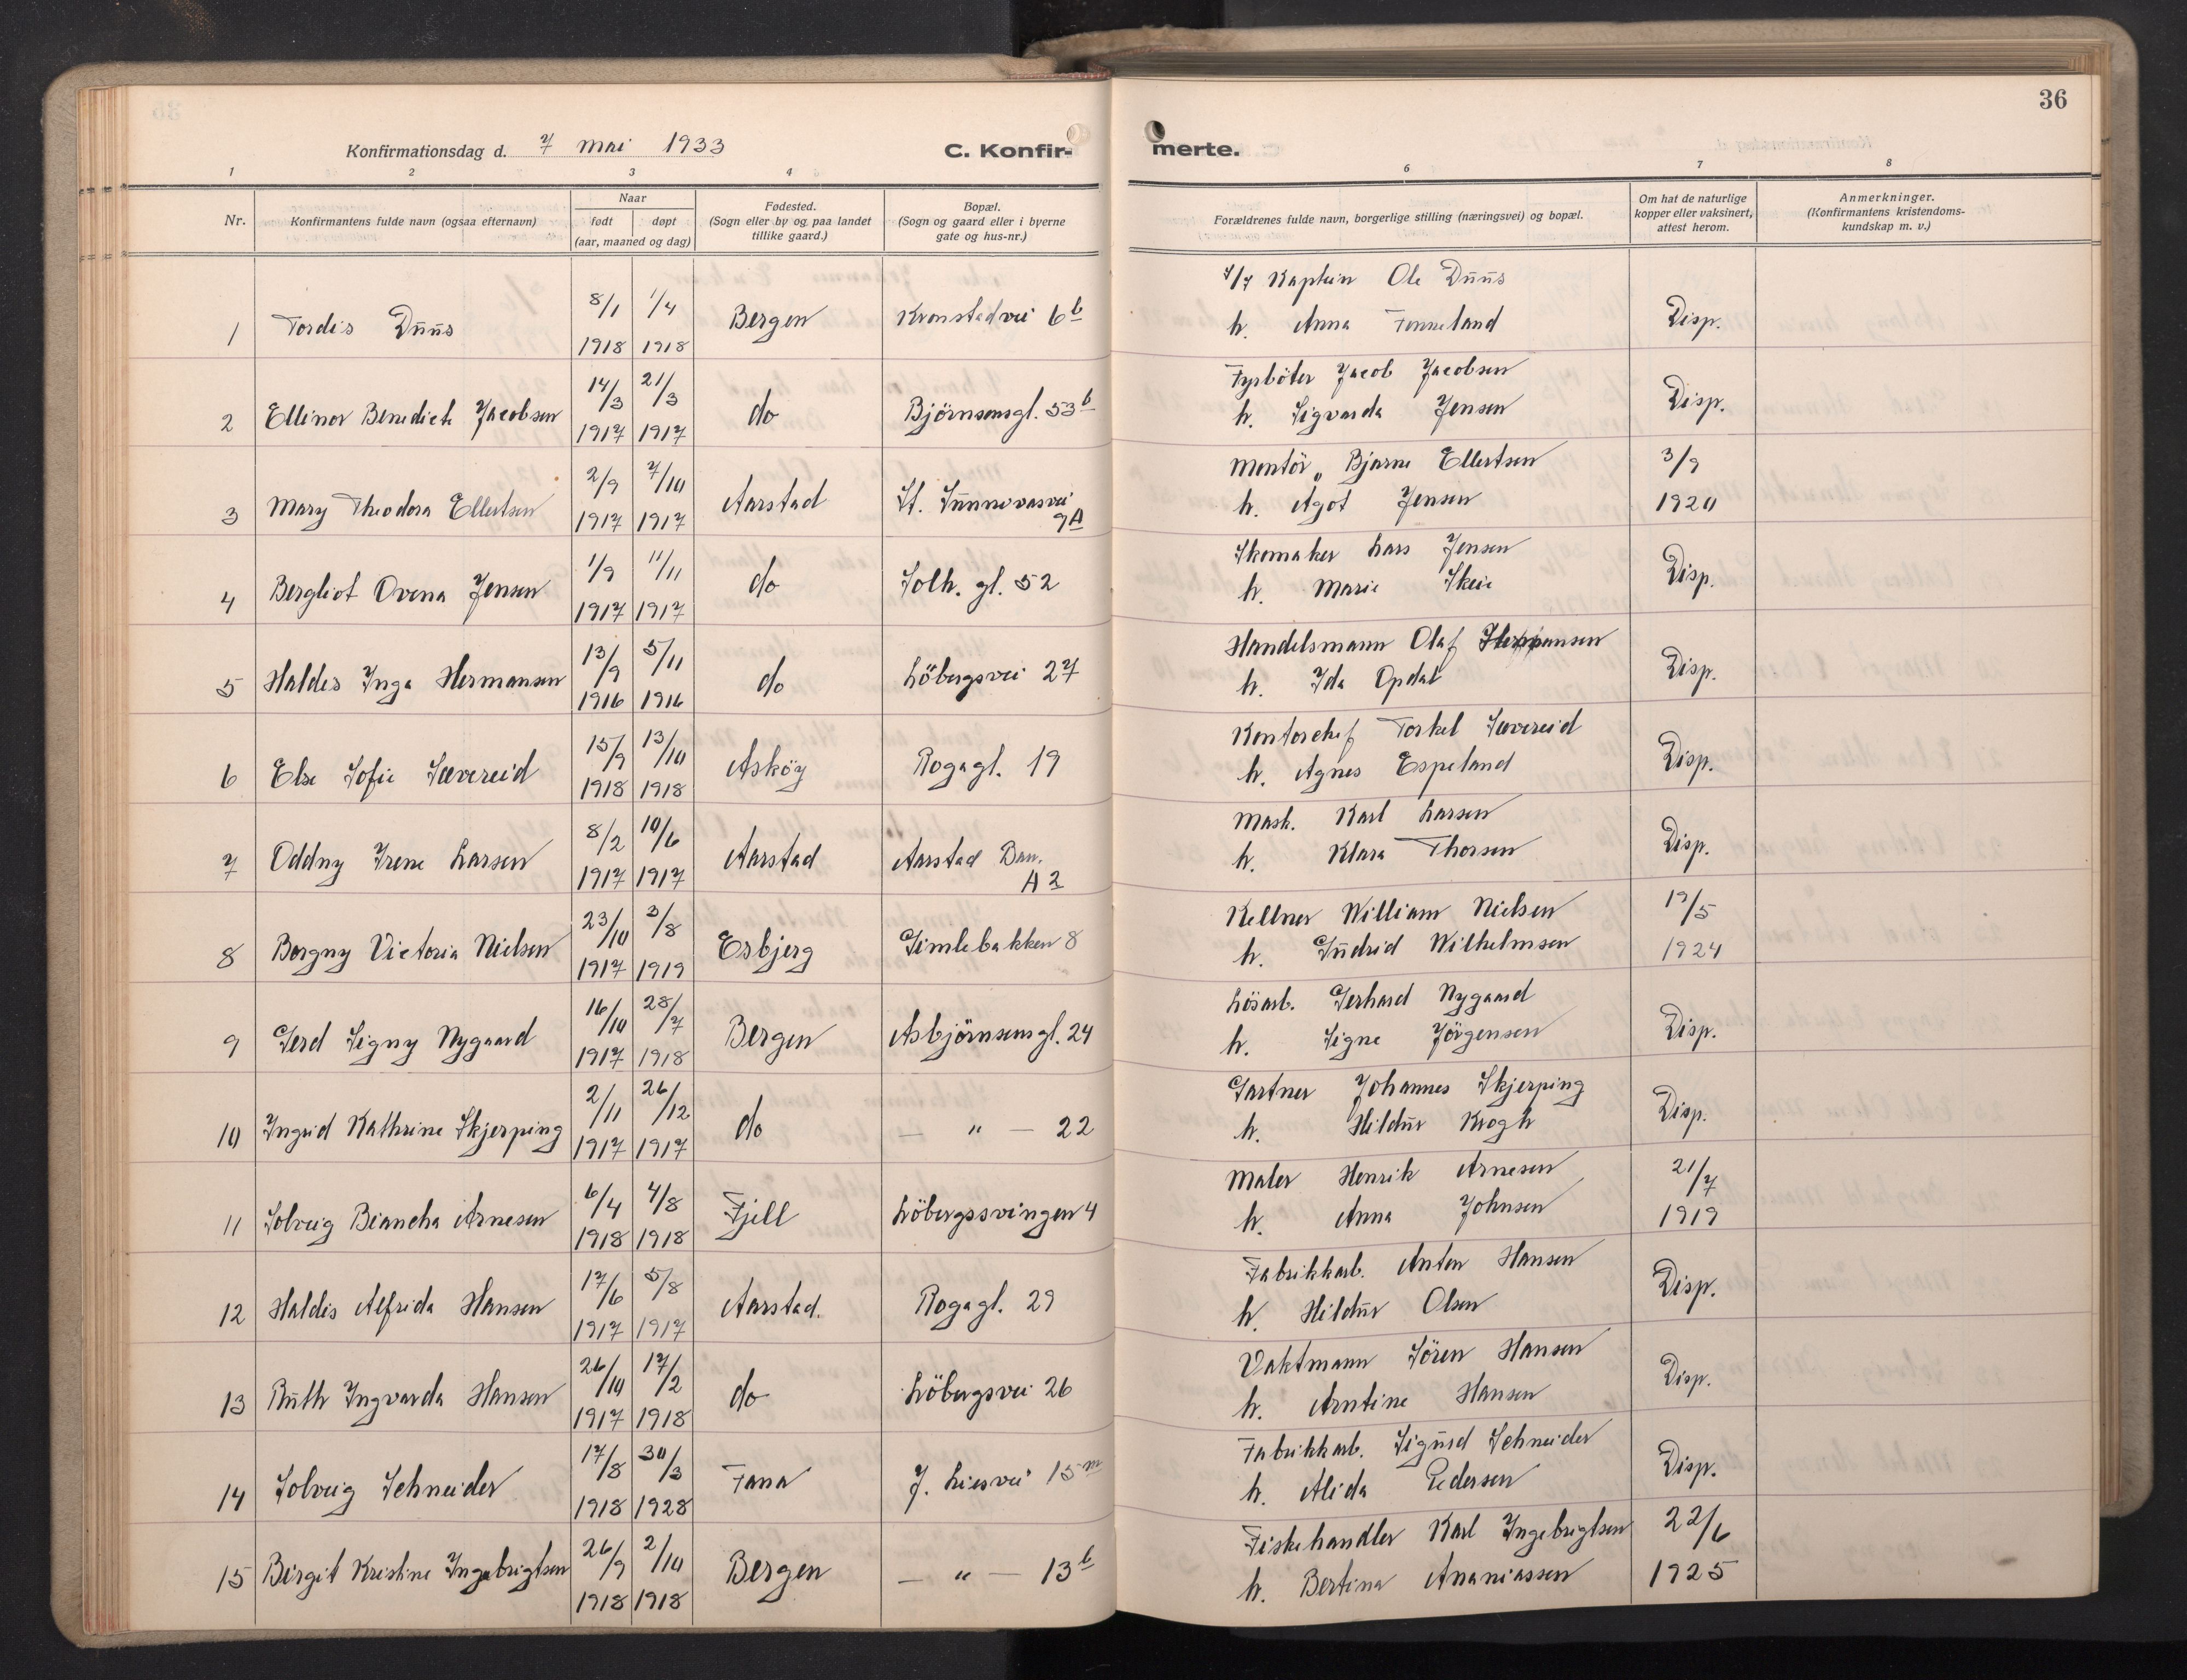 36
Konfirmationsdag d. 7 mai 1933
C. Konfir-
merte.
1 2 3 4 6 7 8
Nr.
Konfirmantens fulde navn (ogsaa efternavn)
Naar
født døpt
(aar, maaned og dag)
Fødested.
(Sogn eller by og paa landet
tillike gaard.)
Bopæl.
(Sogn og gaard eller i byerne
gate og hus-nr.)
Forældrenes fulde navn, borgerlige stilling (næringsvei) og bopæl.
Om hat de naturlige
kopper eller vaksinert,
attest herom.
Anmerkninger.
(Konfirmantens kristendoms-
kundskap m. v.)
1 Tordis Duus 8/1 1918 1/4 1918 Bergen Kronstadvei 6b
Kaptein Ole Duus
h. Anna Fenneland
Disp.
2 Ellinor Benedicte Jacobsen 14/3 1917 21/3 1917 do Björnsonsgt. 53b
Fyrböter Jacob Jacobsen
h. Sigvarda Jensen
Disp.
3 Mary Theodora Ellertsen 2/9 1917 7/10 1917 Aarstad St. Sunnivasvei
9A
Montör Bjarne Ellertsen
h. Agot Jensen
3/9
1920
4 Bergliot Ovena Jensen 1/9 1917 11/11 1917 do Solh. gt. 52
Skomaker Lars Jensen
h. Marie Skeie
Disp.
5 Haldis Inga Hermansen 13/9 1916 5/11 1916 do Löbergsvei 27
Handelsmann Olaf Hermansen
h. Ida Opdal
Disp.
6 Else Sofie Sævereid 15/9 1918 13/10 1918 Asköy Rogagt. 19
Kontorchef Torkel Sævereid
h. Agnes Espeland
Disp.
7 Oddny Irene Larsen 8/2 1917 10/6 1917 Aarstad Aarstad Bar.
A 2
Mask. Karl Larsen
h. Klara Thorsen
Disp.
8 Borgny Victoria Nielsen 23/10 1917 3/8 1919 Esbjerg Gimlebakken 8
Kellner William Nielsen
h. Gudrid Wilhelmsen
19/5
1924
9 Gerd Signy Nygaard 16/10 1917 28/7 1918 Bergen Asbjörnsensgt. 24
Lösarb. Gerhard Nygaard
h. Signe Jörgensen
Disp.
10 Ingrid Kathrine Skjerping 2/11 1917 26/12 1917 do — " — 22
Gartner Johannes Skjerping
h. Hildur Krogh
Disp.
11 Solveig Biancha Arnesen 6/4 1918 4/8 1918 Fjell Löbergssvingen 4
Maler Henrik Arnesen
h. Anna Johnsen
21/7
1919
12 Haldis Alfrida Hansen 17/6 1917 5/8 1917 Aarstad. Rogagt. 29
Fabrikkarb. Anton Hansen
h. Hildur Olsen
Disp.
13 Ruth Ingvarda Hansen 26/10 1917 17/2 1918 do Löbergsvei 26
Vaktmann Sören Hansen
h. Arntine Hansen
Disp.
14 Solveig Schneider 17/8 1918 30/3 1928 Fana J. Liesvei 15m
Fabrikkarb. Sigurd Schneider
h. Alida Pedersen
Disp.
15 Birgit Kristine Ingebrigtsen 26/9 1918 2/10 1918 Bergen — " — 13b
Fiskehandler Karl Ingebrigtsen
h. Bertina Ananiassen
22/6
1925